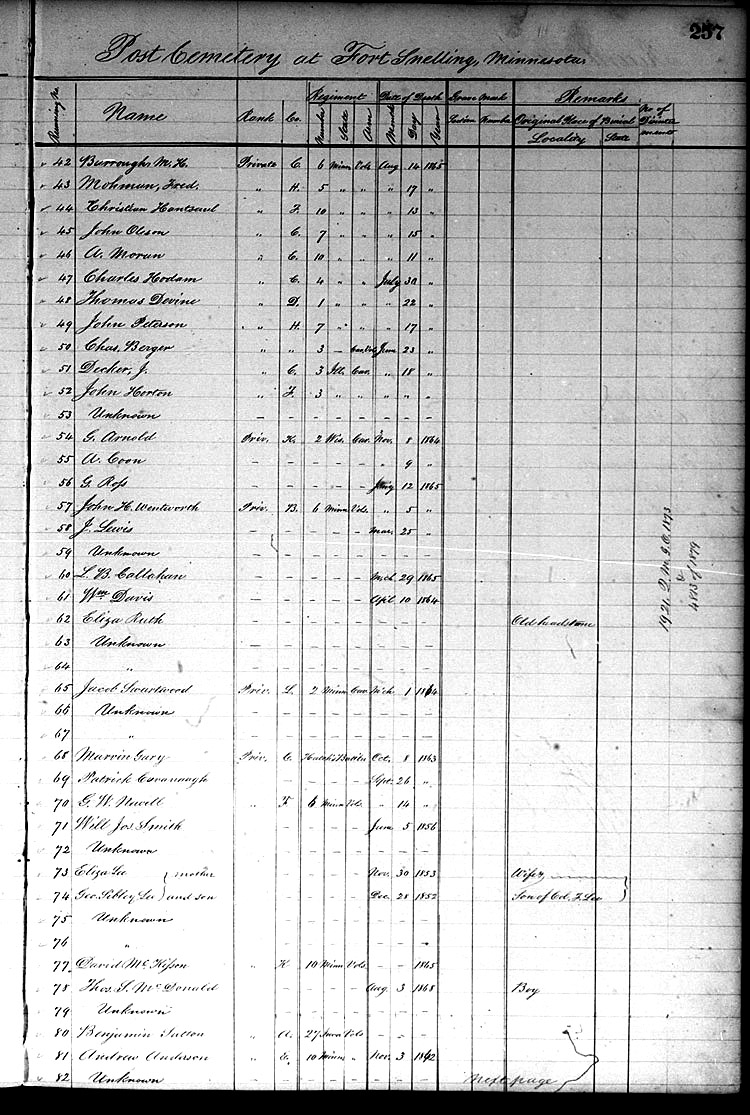 257
Post Cemetery at Fort Snelling, Minnesota.
Running No. Name Rank Co. Regiment Number State Arm Date of Death Month Day Year Grave Mark Section Number Remarks Original Place of Burial Locality State No. of Disinterments
42 Burrough, M. H. Private C. 6 Minn Vols Aug 14 1865
43 Mohmun, Fred. " H. 5 " " " 17 "
44 Christian Hantzaul " F. 10 " " " 13 "
45 John Oleson " C. 7 " " " 15 "
46 A. Moran " C. 10 " " " 11 "
47 Charles Hodam " C. 4 " " July 30 "
48 Thomas Devine " D. 1 " " " 22 "
49 John Peterson " H. 7 " " " 17 "
50 Chas. Berger " " 3 — Cav. Vols June 23 "
51 Decker, J. " C. 3 Ill. Cav. " 18 "
52 John Horton " F. 3 " " " " "
53 Unknown — — — — — — — —
54 G. Arnold Priv. K. 2 Wis. Cav. Nov. 8 1864
55 A. Coon — — — — — " 9 "
56 G. Roſs — — — — — Jany 12 1865
57 John H. Wentworth Priv. B. 6 Minn Vols " 5 "
58 J. Lewis — — — — — Mar. 25 "
59 Unknown — — — — — — — —
60 L. B. Callahan — — — — — Mch 29 1865
61 Wm Davis — — — — — Apil 10 1864
62 Eliza Ruth — — — — — — — — Old headstone
63 Unknown — — — — — — — —
64 " — — — — — — — —
65 Jacob Swartwood Priv. L. 2 Minn Cav. Mch 1 1864
66 Unknown — — — — — — — —
67 " — — — — — — — —
68 Marvin Gary Priv. C. Hatch's Battln Oct. 8 1863
69 Patrick Cavanaugh — — — — Sept. 26 "
70 G. W. Newell " F 6 Minn Vols " 14 "
71 Will Jos. Smith — — — — — June 5 1856
72 Unknown — — — — — — — —
73 Eliza Lee } mother — — — — Nov. 30 1853 Wife
74 Geo. Sibley Lee } and son — — — — Dec. 28 1852 Son of Col. F. Lee
75 Unknown — — — — — — — —
76 " — — — — — — — "
77 David McKiſson " K 10 Minn Vols — — 1865
78 Thos. S. McDonald — — — — Aug 3 1868 Boy
79 Unknown — — — — — — — —
80 Benjamin Sutton " A. 27 Iowa Vols — — —
81 Andrew Anderson " E. 10 Minn " Nov. 3 1862
82 Unknown — — — — — — — —
next page
1921. Q. M. G. O. 1873
&
4813 of 1879